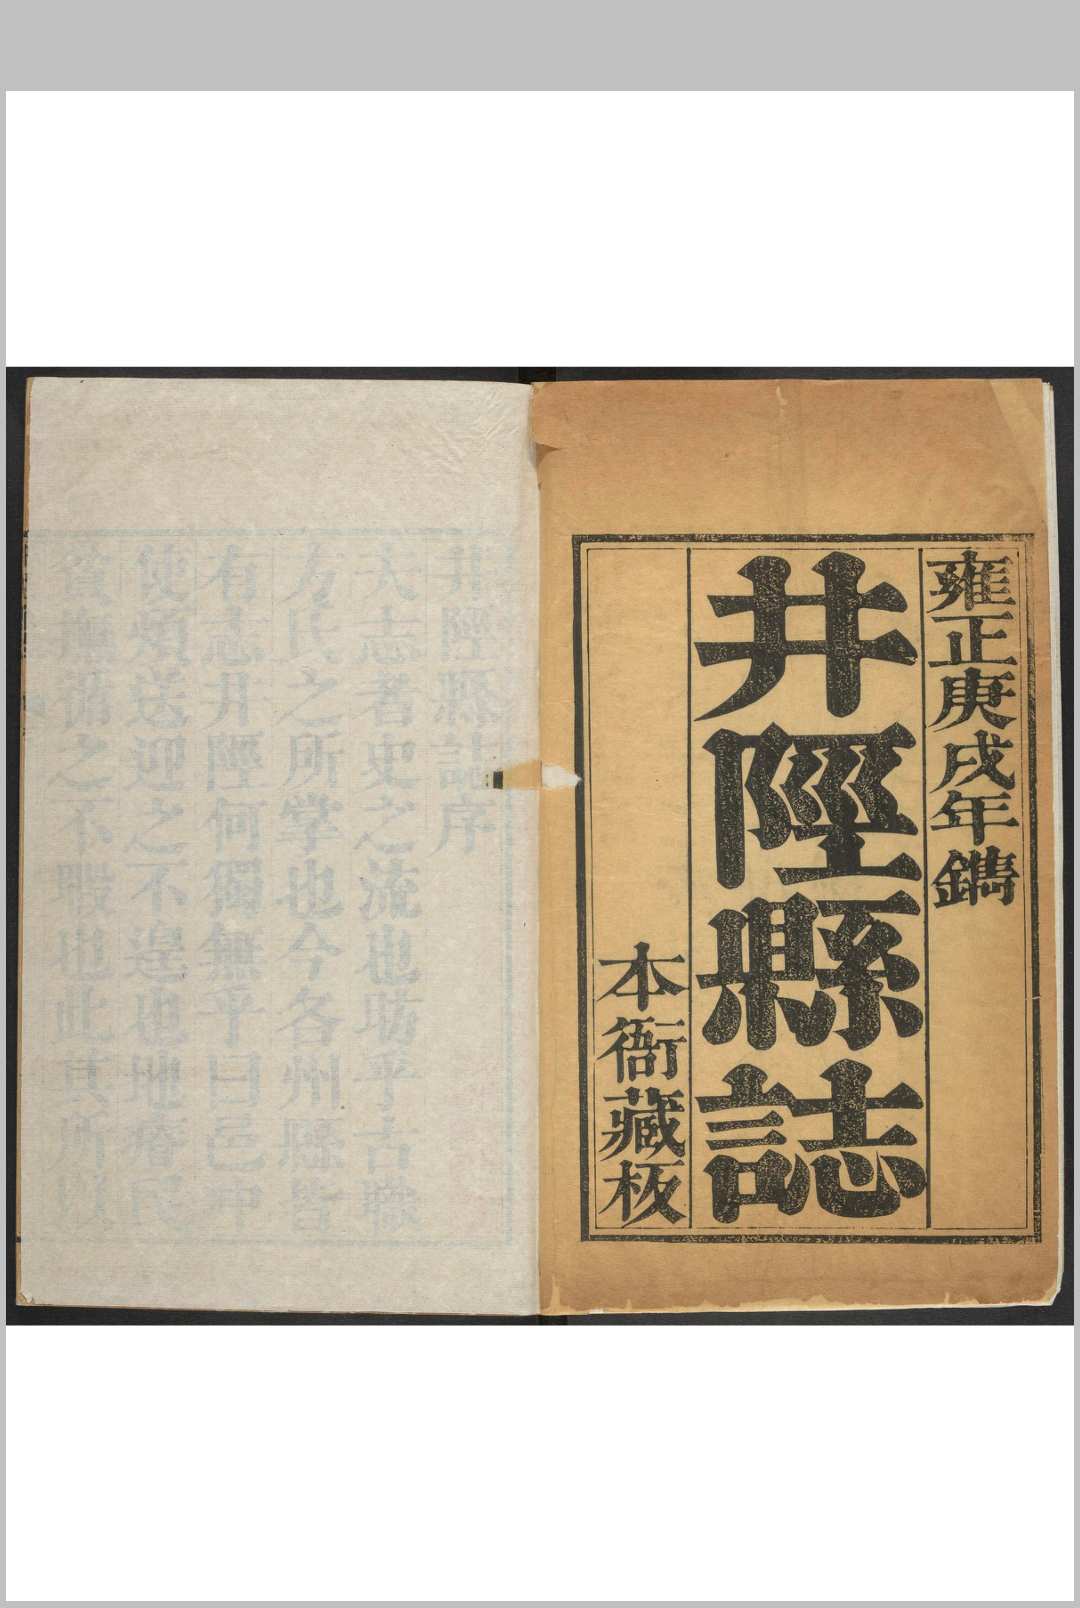 雍正庚戌年鐫
井陘縣誌
本衙藏板
井陘縣誌序
夫志者史之流也昉乎古職
方氏之所掌也今各州縣皆
有志井陘何獨無乎曰邑甲
使煩送迎之不遑也地瘠民
貧
之不暇也此其所